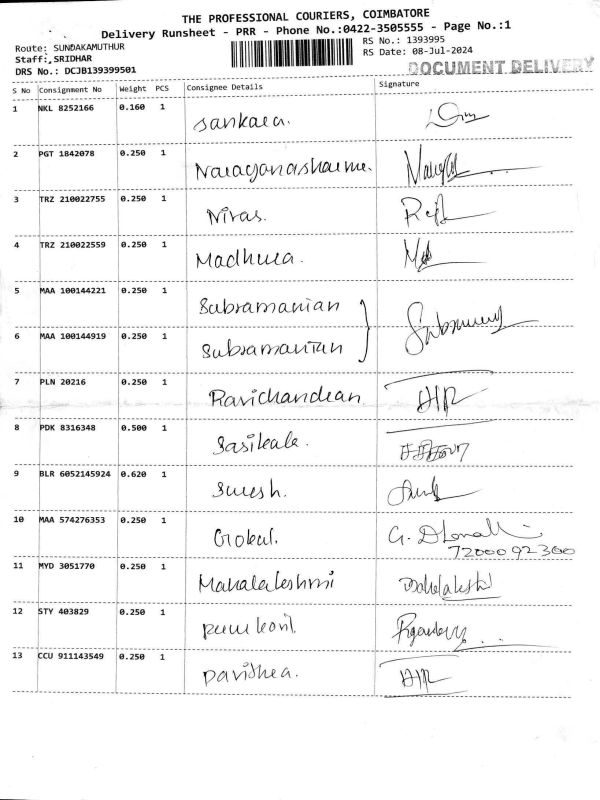 THE PROFESSIONAL COURIERS, COIMBATORE
Delivery Runsheet - PRR - Phone No.:0422-3505555 - Page No.:1
Route: SUNDAKAMUTHUR
RS No.: 1393995
Staff:,SRIDHAR
RS Date: 08-Jul-2024
DRS No.: DCJB139399501
DOCUMENT DELIVERY
S No Consignment No Weight PCS Consignee Details Signature
1 NKL 8252166 0.160 1 Sankara.
2 PGT 1842078 0.250 1
3 TRZ 210022755 0.250 1 Nivas.
4 TRZ 210022559 0.250 1 Madhura.
5 MAA 100144221 0.250 1 Subramanian
6 MAA 100144919 0.250 1 Subramanian
7 PLN 20216 0.250 1 Ravichandran
8 PDK 8316348 0.500 1 Sasikala.
9 BLR 6052145924 0.620 1 Suresh.
10 MAA 574276353 0.250 1 Global. G.
72000 92300
11 MYD 3051770 0.250 1 Mahalakshmi
12 STY 403829 0.250 1
13 CCU 911143549 0.250 1